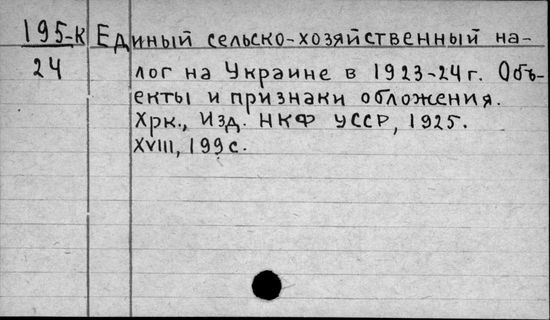 195-К Единый сельско-хозяйственный на-
24 лог на Украине в 1923-24 г. Объ-
екты и признаки обложения.
Хрк., Изд. НКФ УССР, 1925.
XVIII, 199 с.